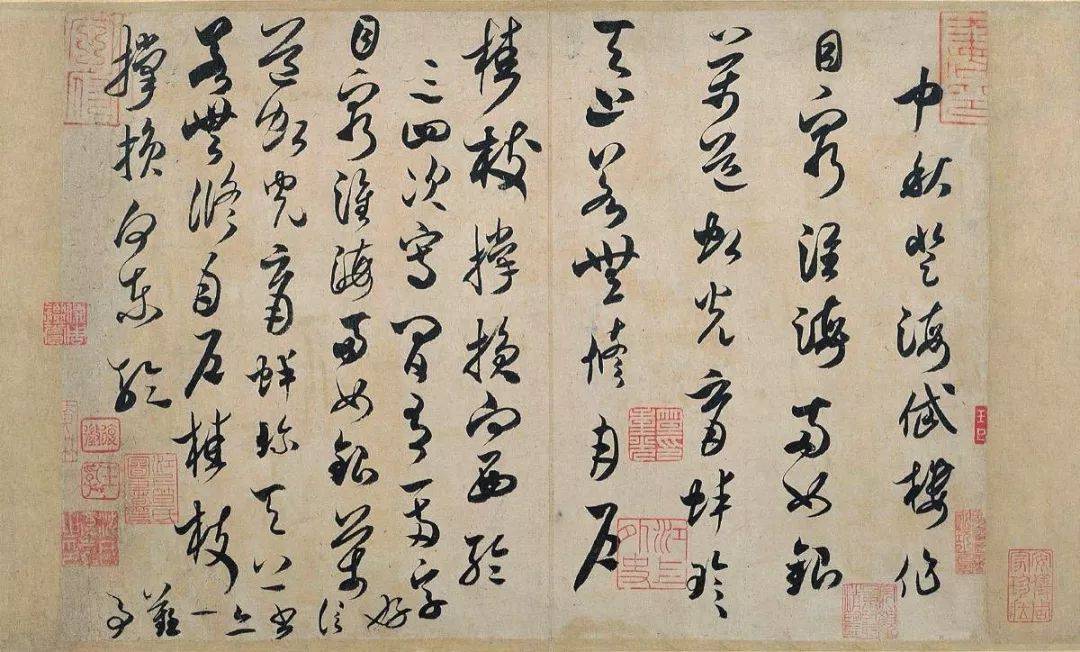 中秋登海岱樓作
目窮淮海兩如銀
萬道虹光育蚌珍
天上若無修月戶
桂枝撐損向西輪
三四次寫間有一兩字
好信書亦一難事
目窮淮海兩如銀萬
道虹光育蚌珍天上
若無修月戶桂枝
撐損向東輪
江上外史